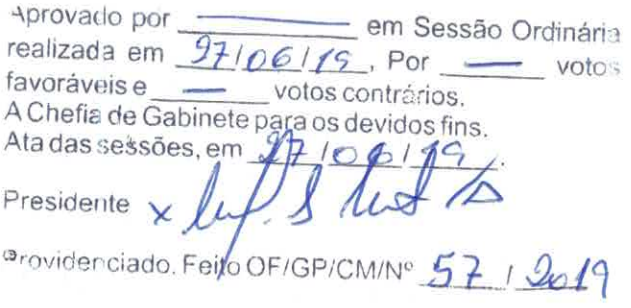 Aprovado por ——— em Sessão Ordinária
realizada em 27/06/19, Por — votos
favoráveis e — votos contrários.
A Chefia de Gabinete para os devidos fins.
Ata das sessões, em 27/06/19.
Presidente x
Providenciado. Feito OF/GP/CM/Nº 57/2019